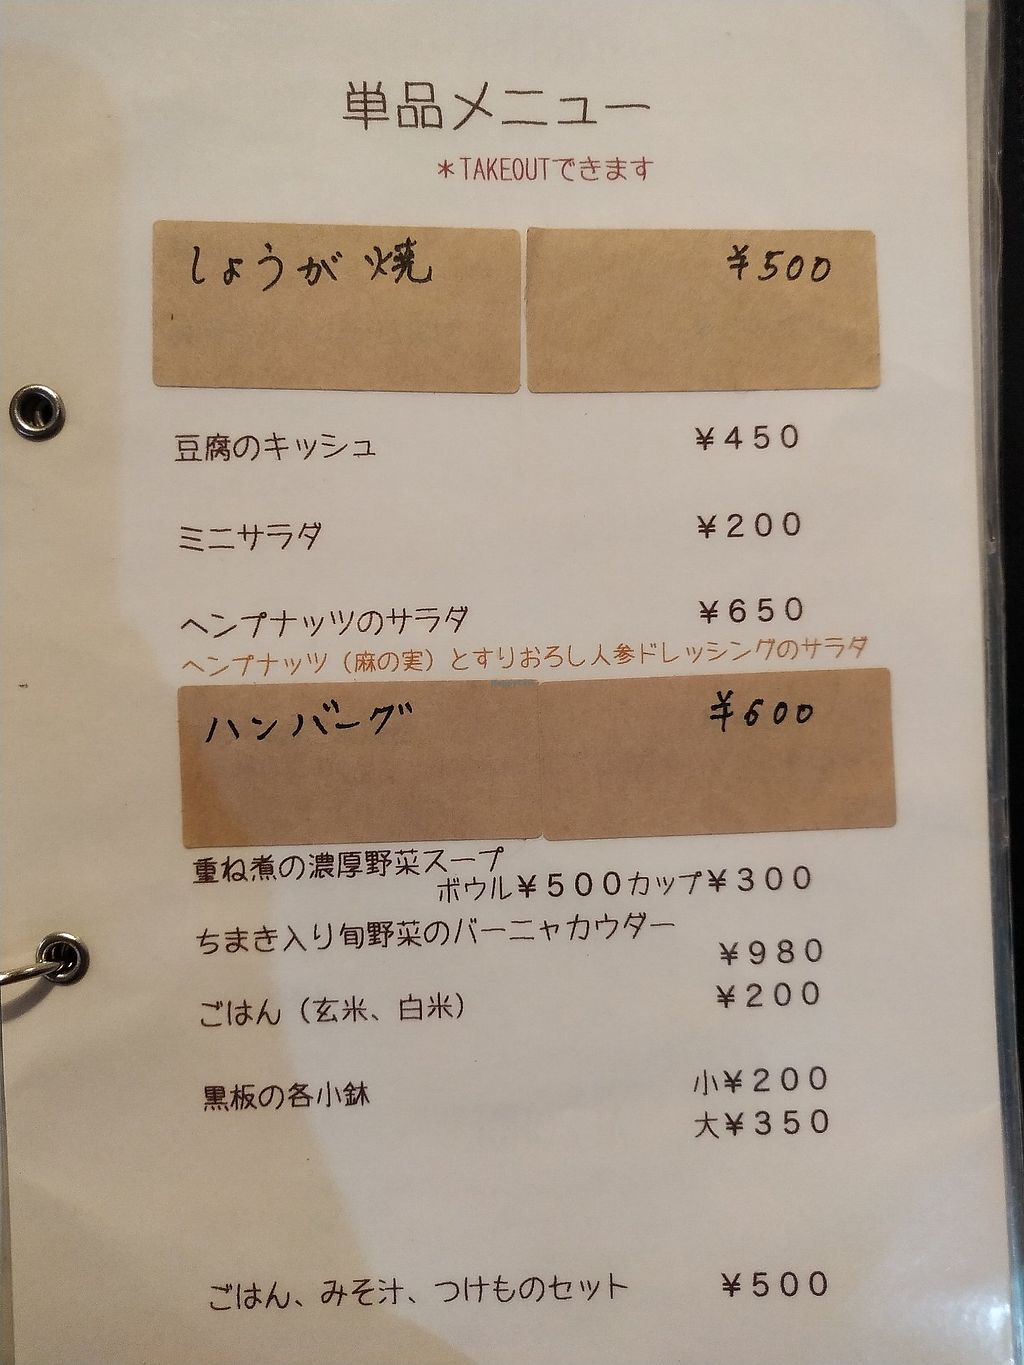 単品メニュー
＊TAKEOUTできます
しょうが焼 ¥500
豆腐のキッシュ ¥450
ミニサラダ ¥200
ヘンプナッツのサラダ ¥650
ヘンプナッツ（麻の実）とすりおろし人参ドレッシングのサラダ
ハンバーグ ¥600
重ね煮の濃厚野菜スープ
ボウル¥500カップ¥300
ちまき入り旬野菜のバーニャカウダー
¥980
ごはん（玄米、白米） ¥200
黒板の各小鉢 小¥200
大¥350
ごはん、みそ汁、つけものセット ¥500